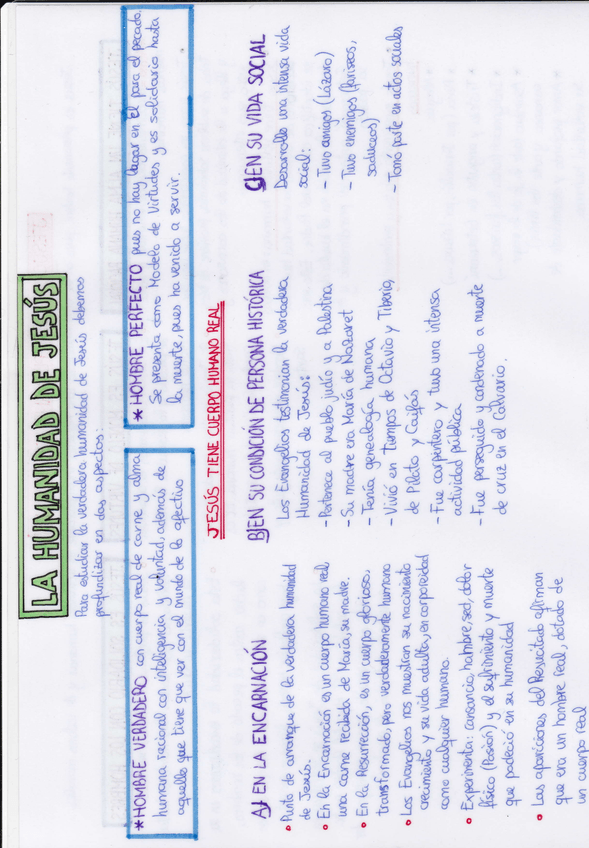 LA HUMANIDAD DE JESÚS
Para estudiar la verdadera humanidad de Jesús debemos
profundizar en dos aspectos:
* HOMBRE VERDADERO con cuerpo real de carne y alma
humana racional con inteligencia y voluntad, además de
aquello que tiene que ver con el mundo de lo afectivo
* HOMBRE PERFECTO pues no hay lugar en Él para el pecado.
Se presenta como Modelo de Virtudes y es solidario hasta
la muerte, pues ha venido a servir.
JESÚS TIENE CUERPO HUMANO REAL
A) EN LA ENCARNACIÓN
• Punto de arranque de la verdadera humanidad
de Jesús.
• En la Encarnación es un cuerpo humano real,
una carne recibida de María, su madre.
• En la Resurrección, es un cuerpo glorioso,
transformado, pero verdaderamente humano
• Los Evangelios nos muestran su nacimiento
crecimiento y su vida adulta, en corporeidad
como cualquier humano.
• Experimenta: cansancio, hambre, sed, dolor
físico (Pasión) y el sufrimiento y muerte
que padeció en su humanidad
• Las apariciones del Resucitado afirman
que era un hombre real, dotado de
un cuerpo real
B) EN SU CONDICIÓN DE PERSONA HISTÓRICA
Los Evangelios testimonian la verdadera
Humanidad de Jesús:
- Pertenece al pueblo judío y a Palestina
- Su madre era María de Nazaret
- Tenía genealogía humana
- Vivió en tiempos de Octavio y Tiberio,
de Pilato y Caifás
- Fue carpintero y tuvo una intensa
actividad pública
- Fue perseguido y condenado a muerte
de cruz en el Calvario.
C) EN SU VIDA SOCIAL
Desarrolló una intensa vida
social:
- Tuvo amigos (Lázaro)
- Tuvo enemigos (fariseos,
saduceos)
- Tomó parte en actos sociales